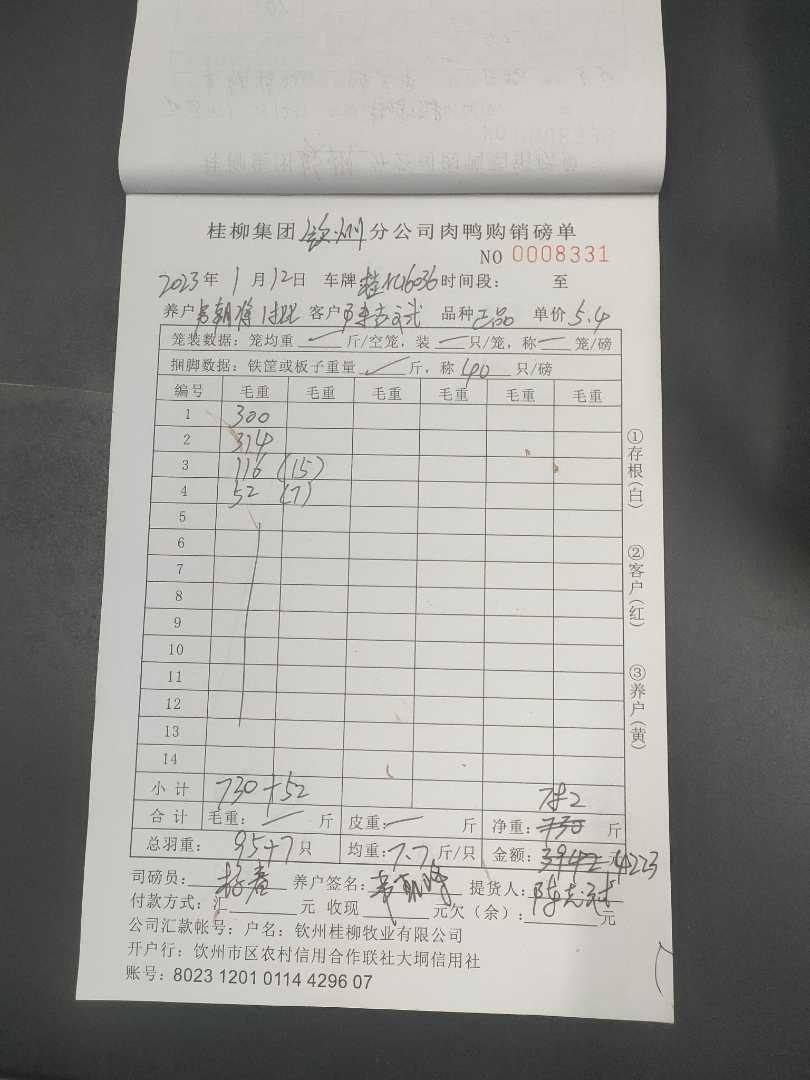 桂柳集团钦州分公司肉鸭购销磅单
NO 0008331
2023年 1月12日 车牌 桂N16036 时间段： 至
养户 客户 陈吉文武 品种 正品 单价 5.4
笼装数据：笼均重 斤/空笼，装 一 只/笼，称 一 笼/磅
捆脚数据：铁筐或板子重量 斤，称 40 只/磅
编号 毛重 毛重 毛重 毛重 毛重 毛重
1 300
2 314
3 116 (15)
4 52 (7)
5
6
7
8
9
10
11
12
13
14
小计 730+52 782
合计 毛重： 斤 皮重： 斤 净重：730 斤
总羽重： 95+7 只 均重：7.7 斤/只 金额：3942 元 4223
司磅员： 养户签名： 提货人：
付款方式：汇 元 收现 元欠（余）： 元
公司汇款帐号：户名：钦州桂柳牧业有限公司
开户行：钦州市区农村信用合作联社大垌信用社
账号：8023 1201 0114 4296 07
①存根（白）
②客户（红）
③养户（黄）